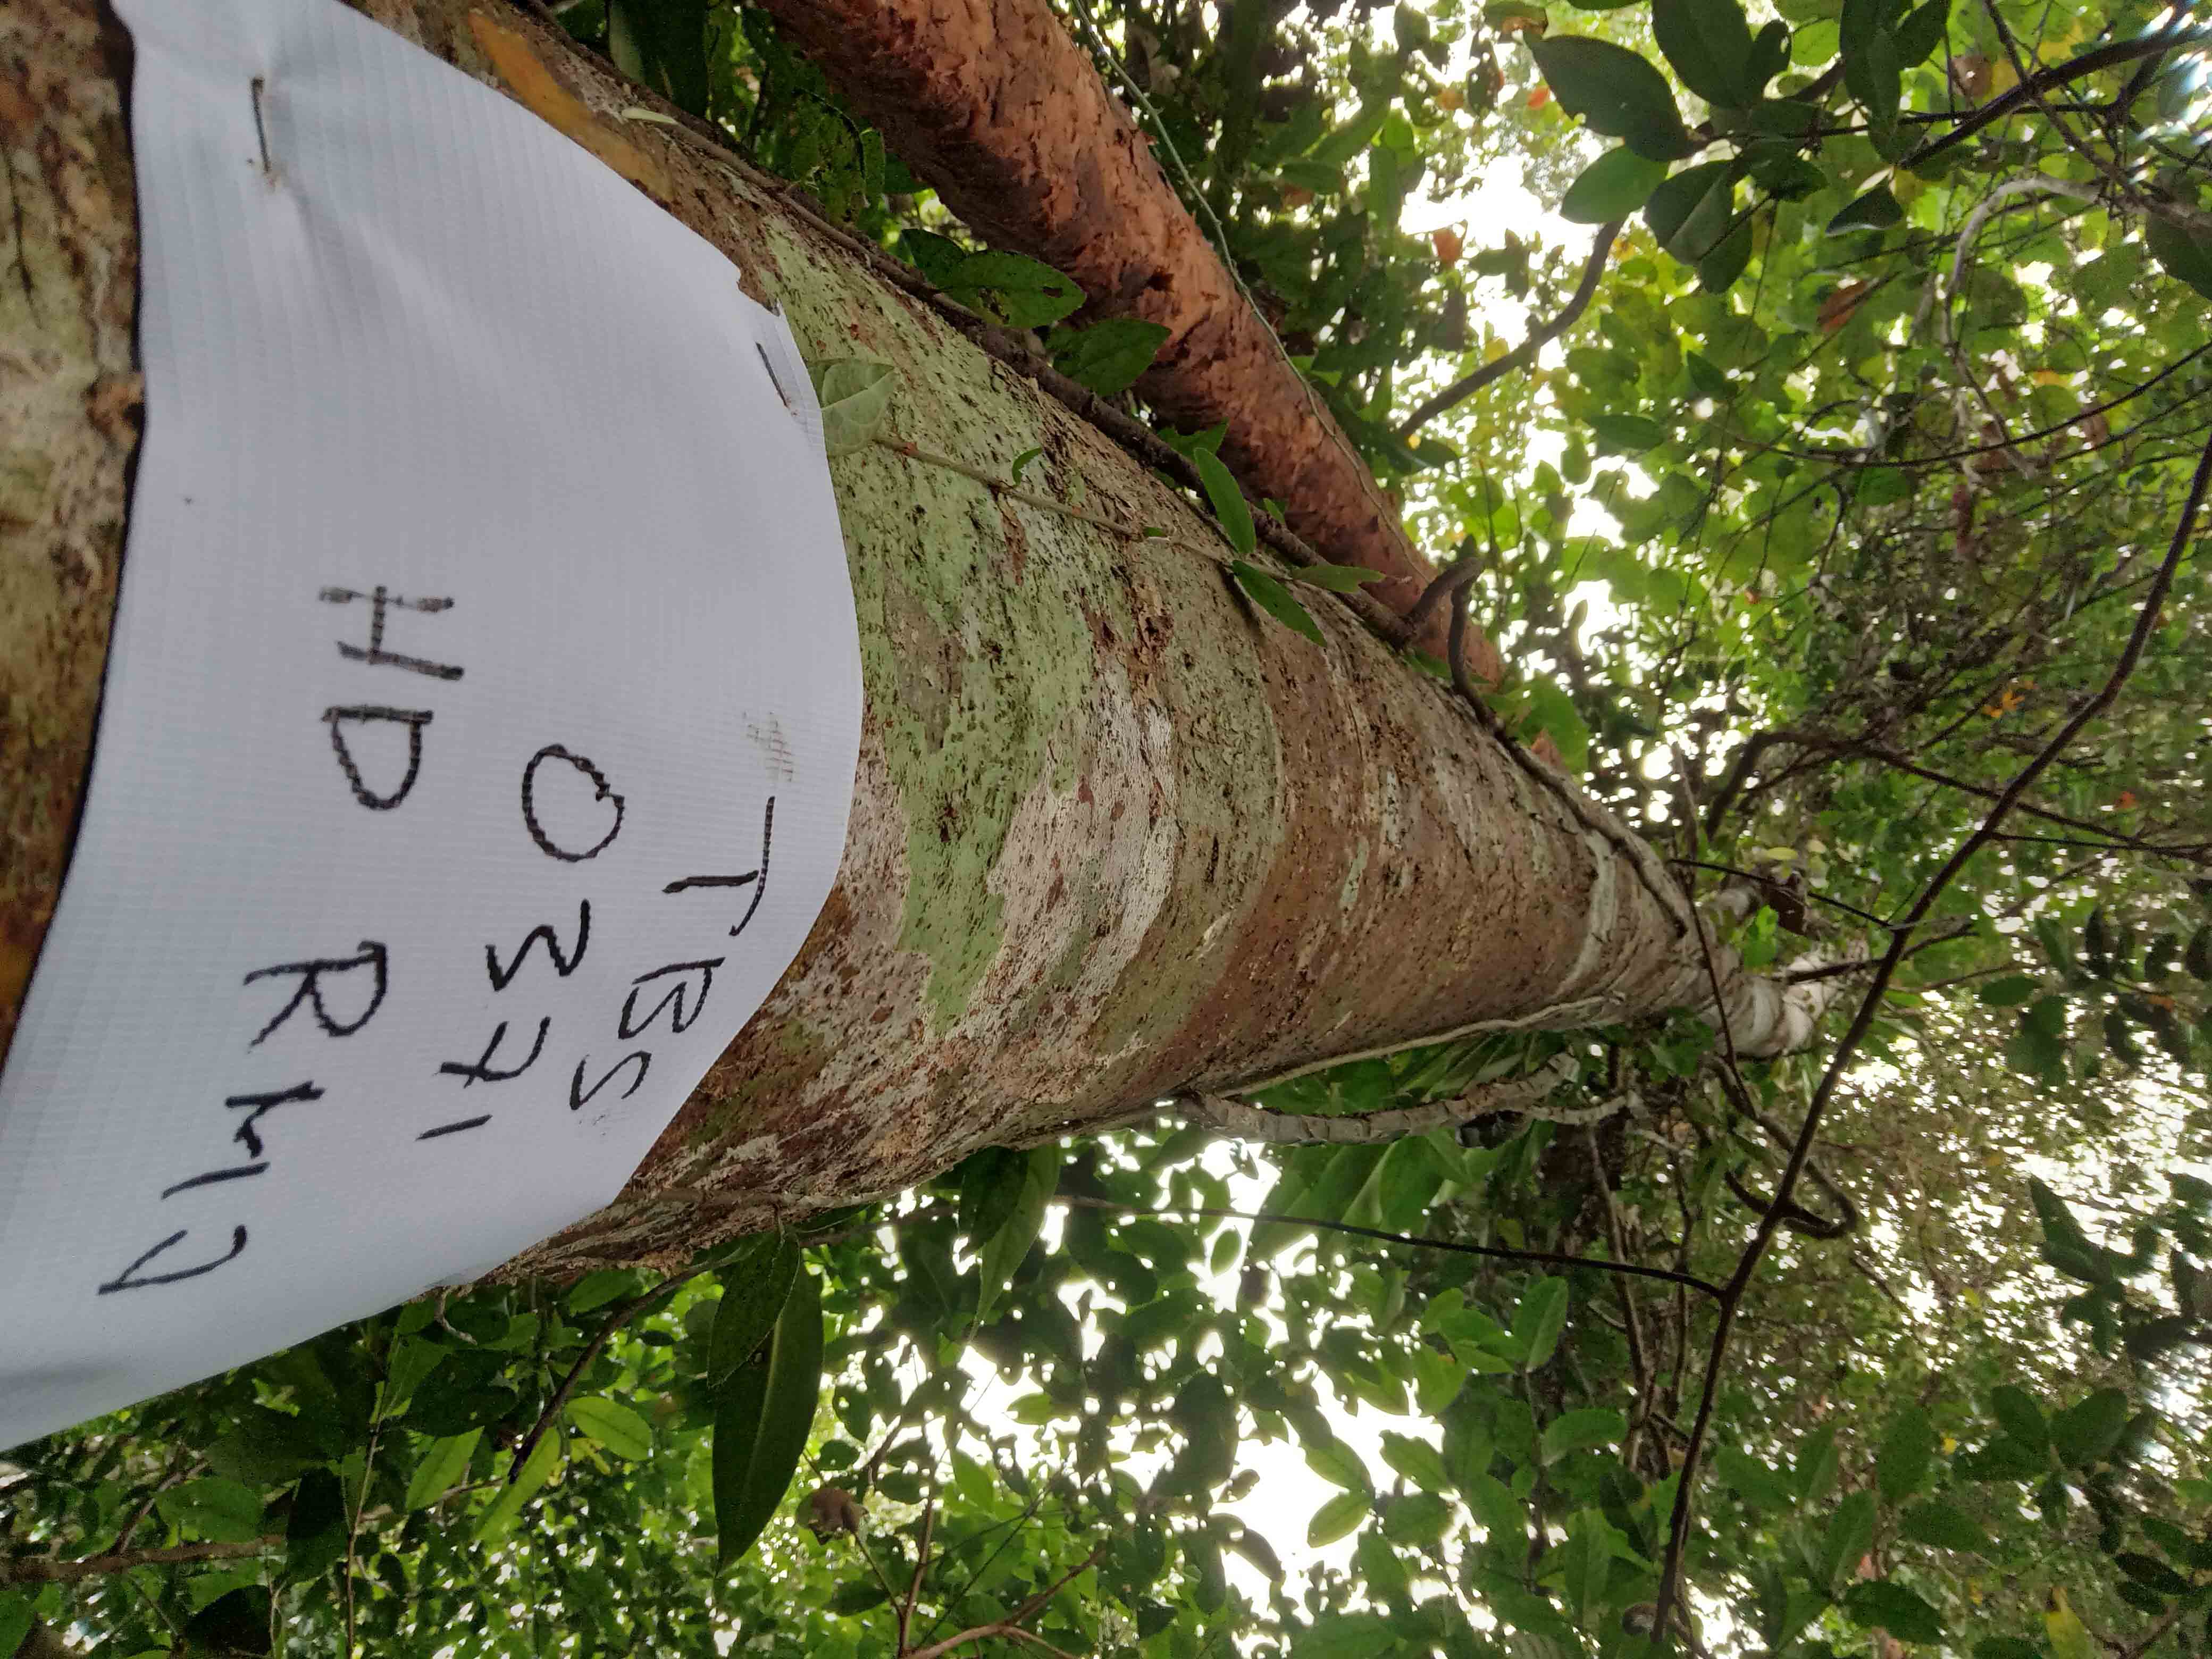 TBS
0371
HD RMJ